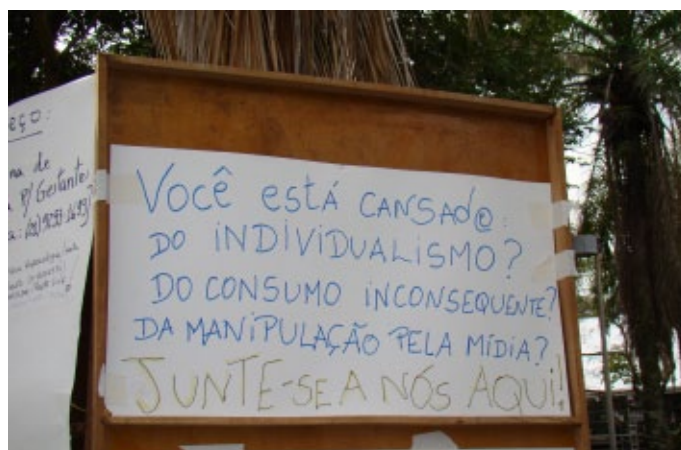 VOCÊ está CANSAD@:
DO iNDiViDUALiSMO?
DO CONSUMO iNCONSEQUENTE?
DA MANiPULAÇÃO PELA MíDiA?
JUNTE-SE A NÓS AQUi!
de
P/ Gestante